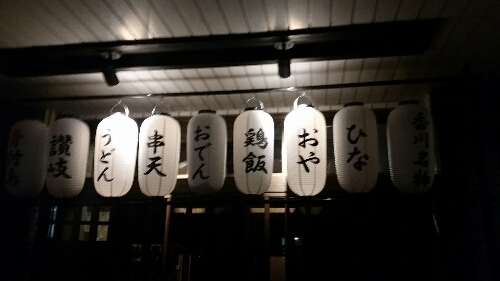 骨付鳥
讃岐
うどん
串天
おでん
鶏飯
おや
ひな
香川名物